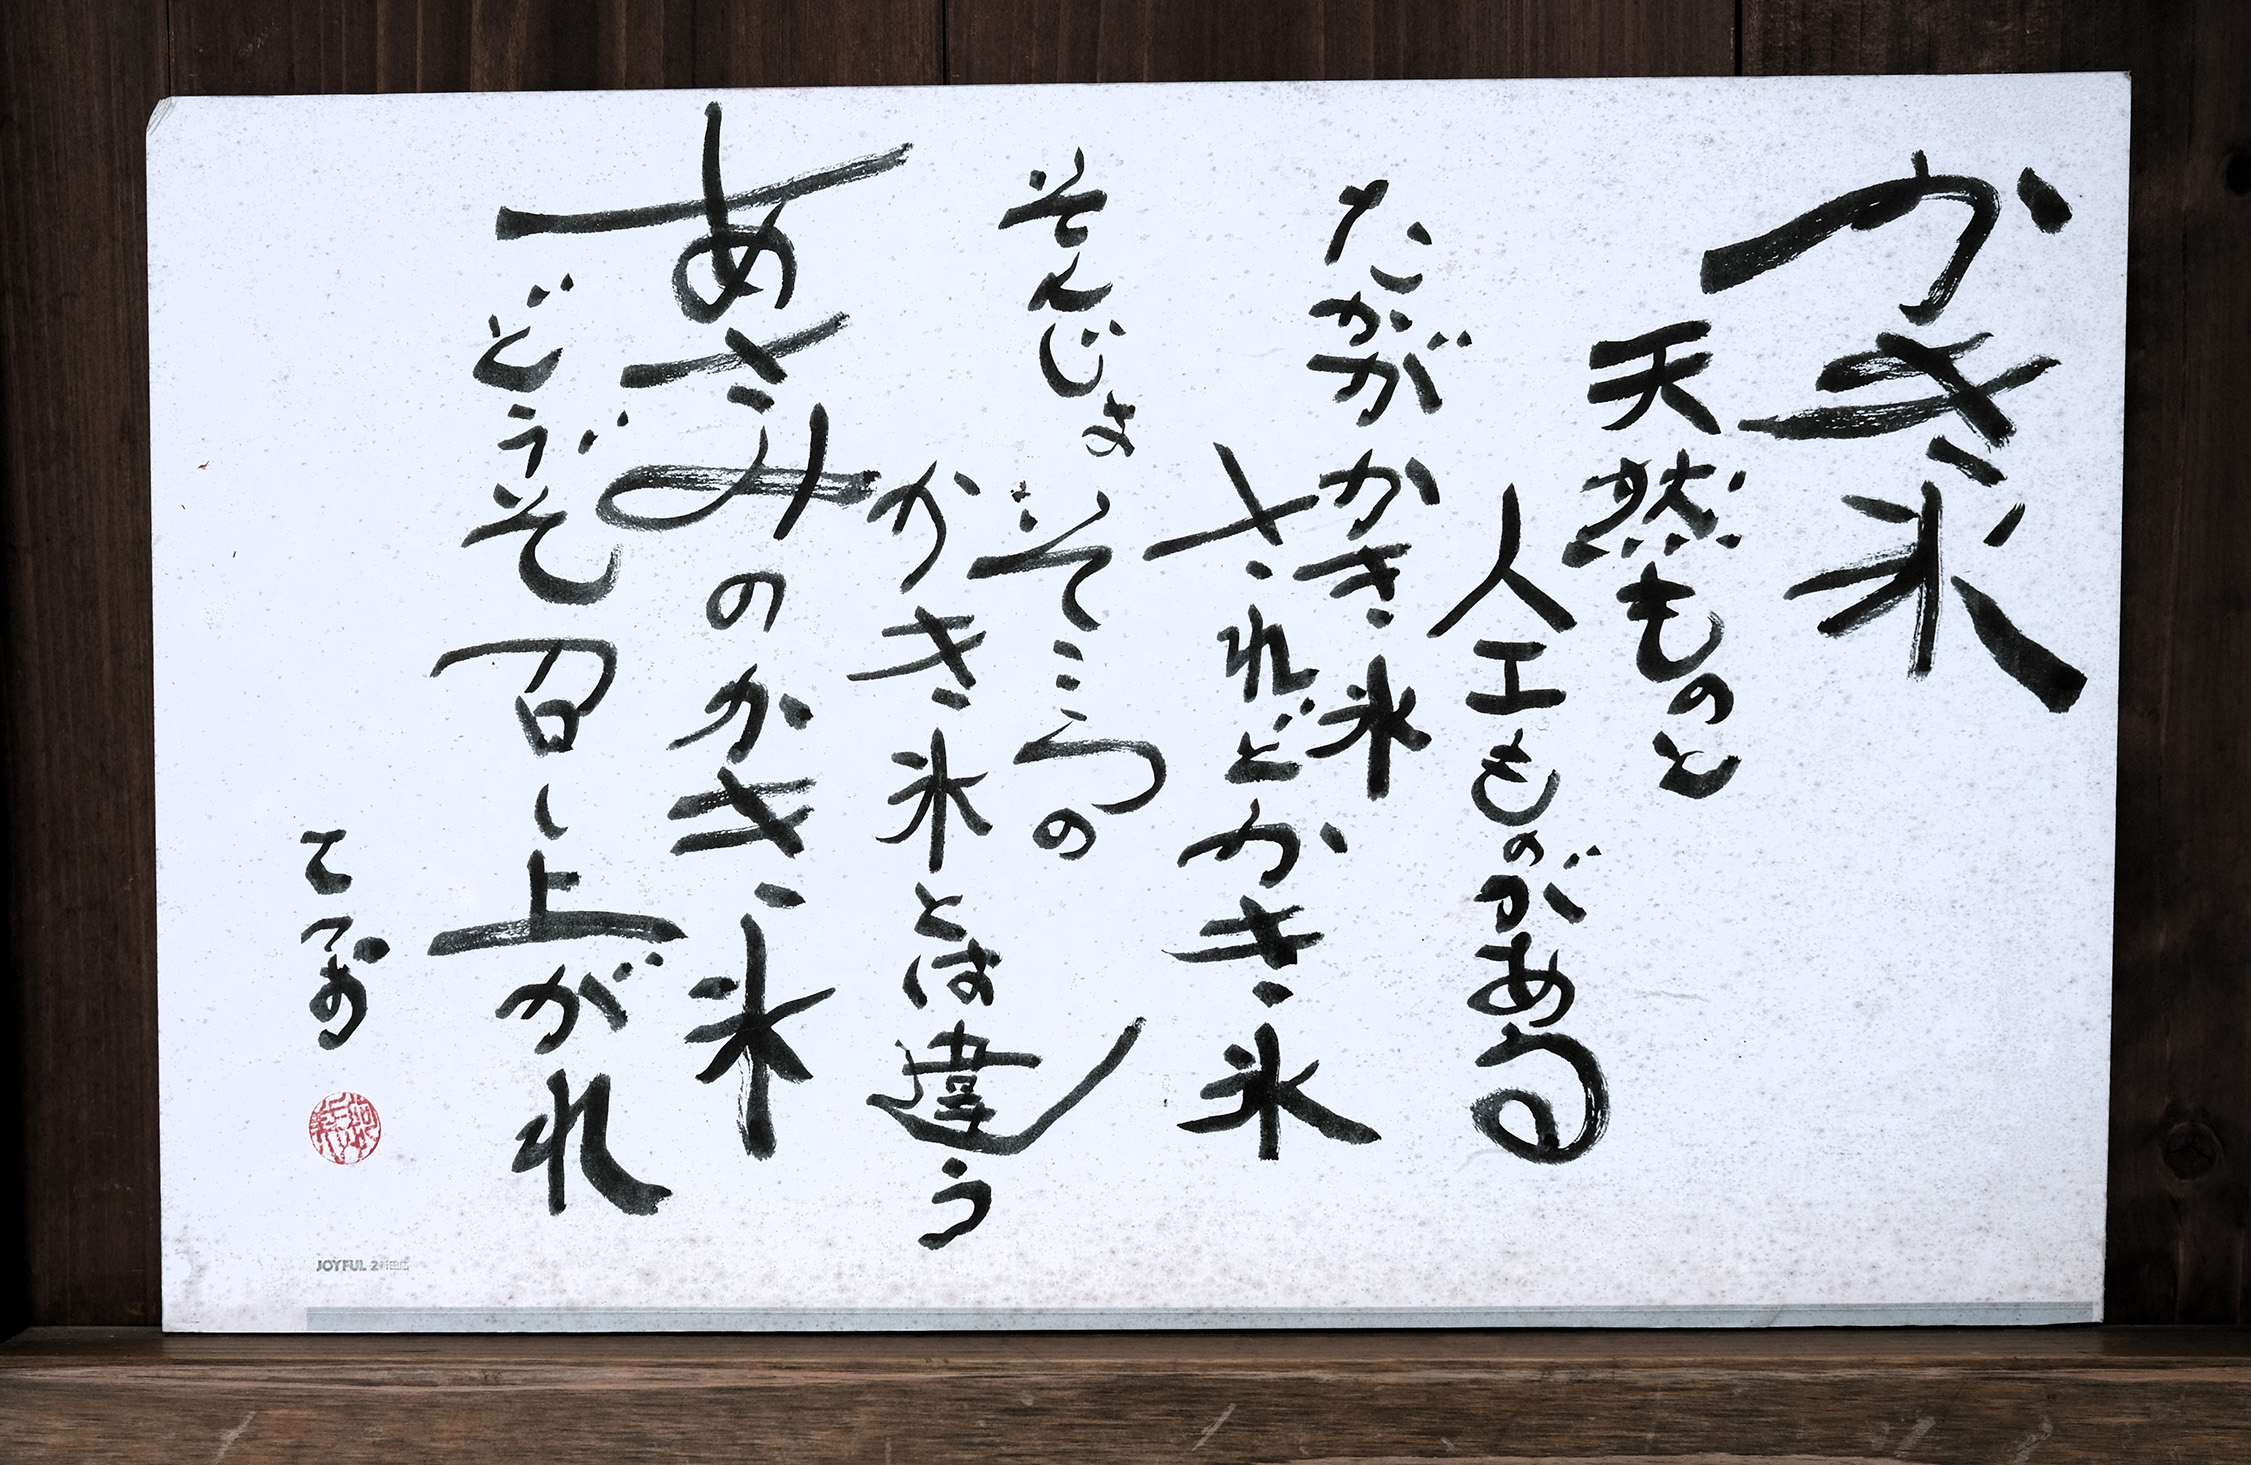 かき氷
天然ものと
人工ものがある
たかがかき氷
されどかき氷
そんじょそこらの
かき氷とは違う
あさみのかき氷
どうぞ召し上がれ
JOYFUL 2